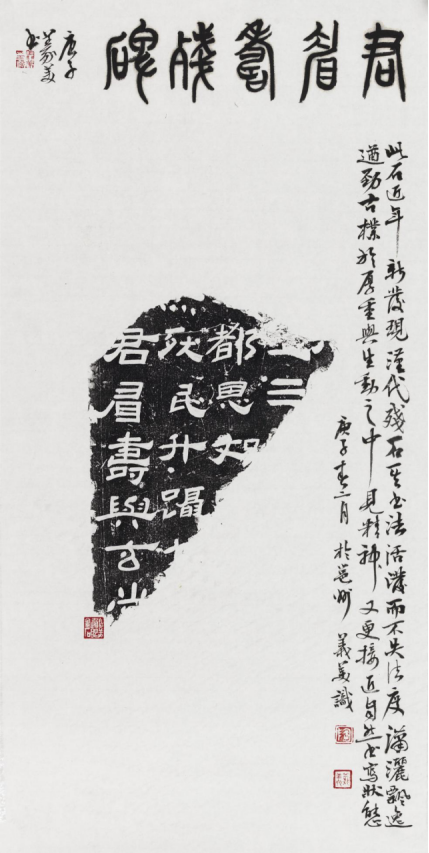 君眉壽殘碑
庚子
義美
书
此石近年新發現漢代殘石其书法活潑而不失法度瀟灑飄逸
遒勁古樸於厚重與生動之中見精神又更接近自然书寫狀態
庚子春二月於邕州義美識
都恩
民升蹋
君眉壽與玄